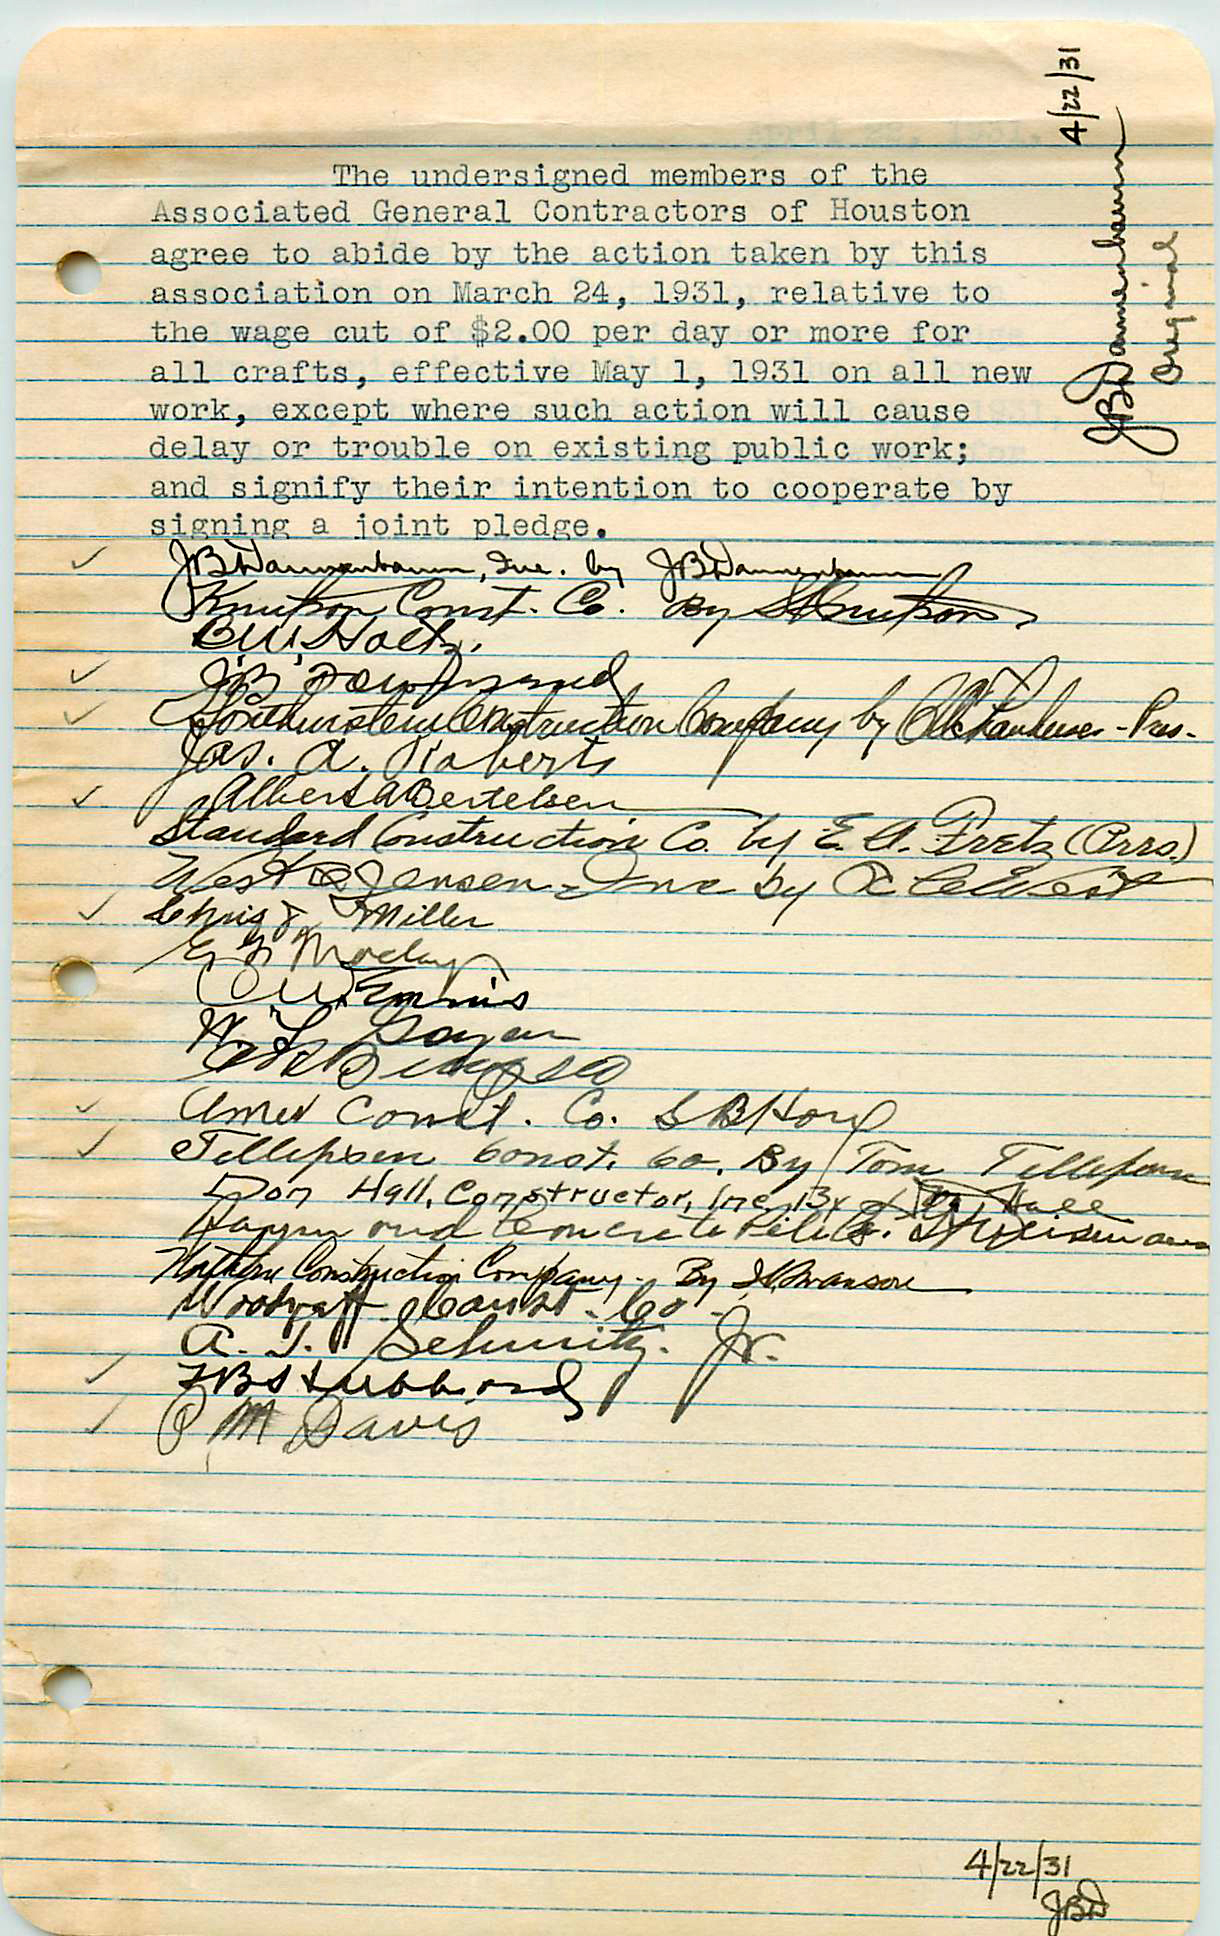 4/22/31
JB Dannenbaum
Original
The undersigned members of the
Associated General Contractors of Houston
agree to abide by the action taken by this
association on March 24, 1931, relative to
the wage cut of $2.00 per day or more for
all crafts, effective May 1, 1931 on all new
work, except where such action will cause
delay or trouble on existing public work;
and signify their intention to cooperate by
signing a joint pledge.
JB Dannenbaum, Inc. by JB Dannenbaum
Knutson Const. Co. By Knutson
J.B. Townsend
Southwestern Construction Company by Pres.
Jas. A. Roberts
Albert A Bertelsen
Standard Construction Co. by E. A. Fretz (Pres.)
West & Jensen - Inc by West
Chris J Miller
C W Ennis
W. L. Goyen
Amer Const. Co. S B Hord
Tellepsen Const. Co. By Tom Tellepsen
Don Hall, Constructor, Inc. By Don Hall
Raymond Concrete Pile Co.
Northern Construction Company - By Swanson
Const. Co.
A. T. Jr.
F B Stubbs
P M Davis
4/22/31
JBD